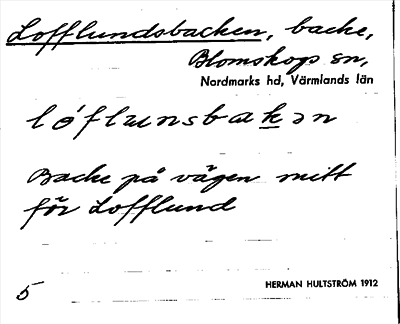 Lofflundsbacken, backe,
Blomskogs sn,
Nordmarks hd, Värmlands län
lóflunsbakən
Backe på vägen mitt
för Lofflund
5
HERMAN HULTSTRÖM 1912